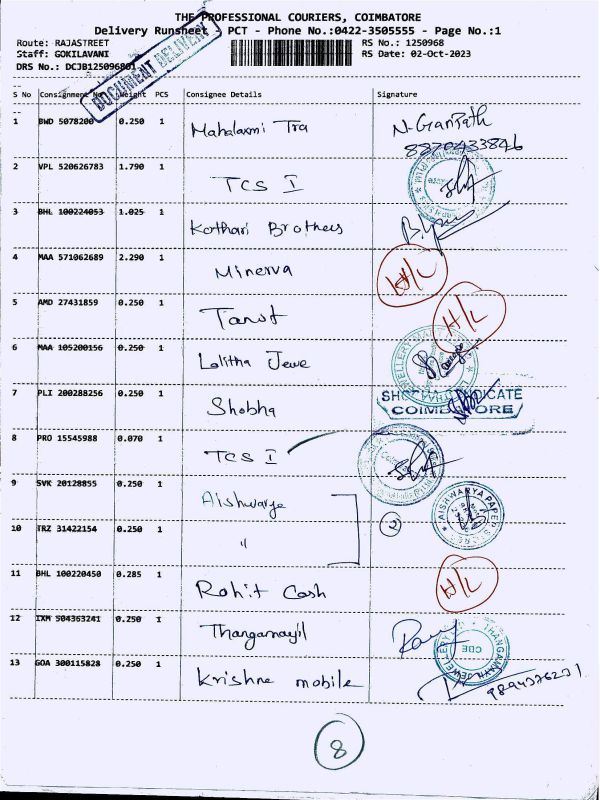 THE PROFESSIONAL COURIERS, COIMBATORE
Delivery Runsheet PCT - Phone No.:0422-3505555 - Page No.:1
Route: RAJASTREET
RS No.: 1250968
Staff: GOKILAVANI
RS Date: 02-Oct-2023
DRS No.:
DOCUMENT DELIVERY
S No Consignment No Weight PCS Consignee Details Signature
1 BWD 5078200 0.250 1 Mahalaxmi Tra
8870433846
2 VPL 520626783 1.790 1 TCS I
3 BHL 100224053 1.025 1 Kothari Brothers
4 MAA 571062689 2.290 1 Minerva H/L
5 AMD 27431859 0.250 1 H/L
6 MAA 105200156 0.250 1 Lalitha Jewe
7 PLI 200288256 0.250 1 Shobha
COIMBATORE
8 PRO 15545988 0.070 1 TCS I
9 SVK 20128855 0.250 1 Aishwarya
AISHWARYA PAPER
2
10 TRZ 31422154 0.250 1 "
11 BHL 100220450 0.285 1 Rohit Cash H/L
12 IXM 504363241 0.250 1 Thangamayil
THANGAMAYIL JEWELLERY
CBE
13 GOA 300115828 0.250 1 Krishna mobile
8